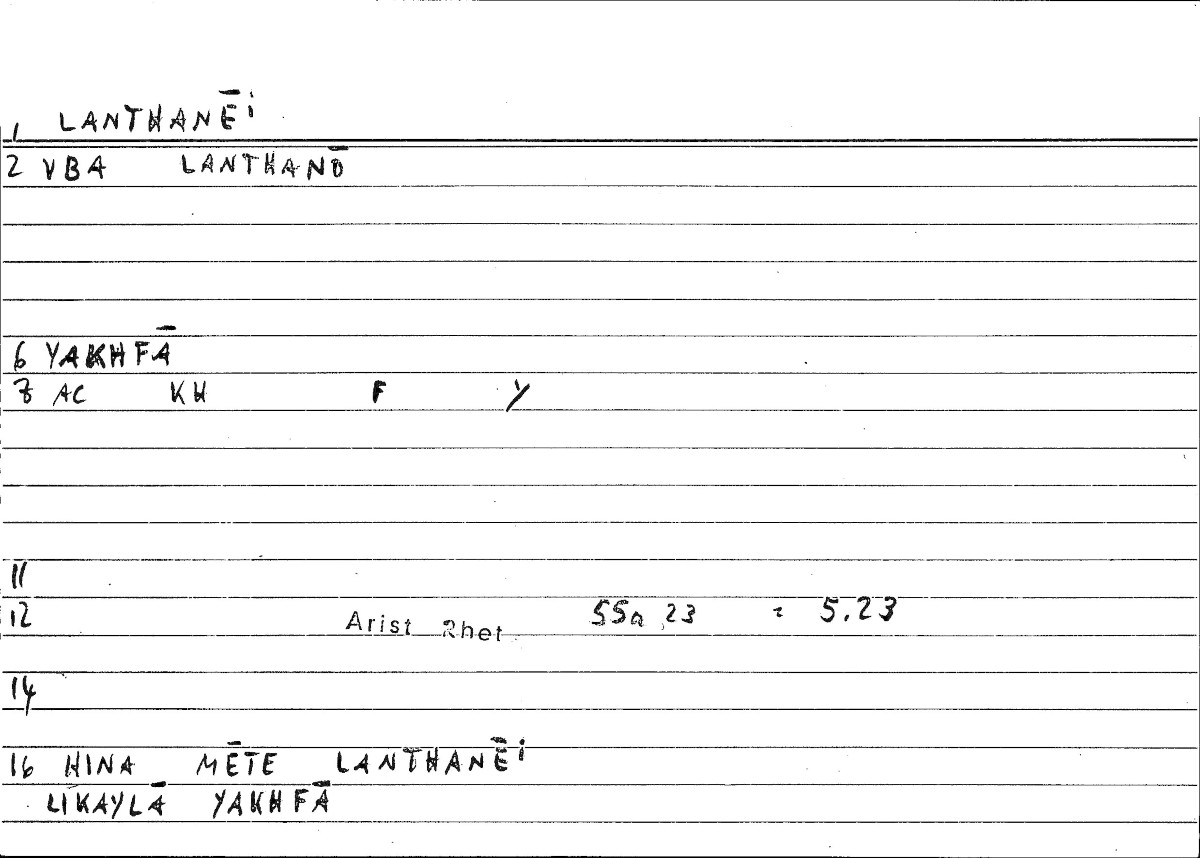 1 LANTHANĒi
2 VBA LANTHANŌ
6 YAKHFĀ
7 AC KH F Y
11
12 Arist Rhet. 55a 23 = 5.23
14
16 HINA MĒTE LANTHANĒi
LIKAYLĀ YAKHFĀ